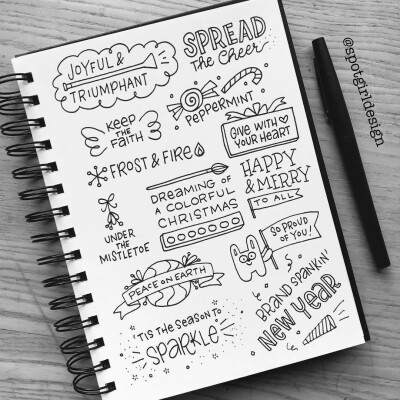 JOYFUL &
TRIUMPHANT
SPREAD
the Cheer
KEEP
THE
FAITH
PEPPERMINT
GIVE WITH
YOUR HEART
FROST & FIRE
HAPPY
& MERRY
TO ALL
DREAMING OF
A COLORFUL
CHRISTMAS
UNDER
THE
MISTLETOE
SO PROUD
OF YOU!
PEACE ON EARTH
BRAND SPANKIN'
NEW YEAR
'TIS THE SEASON TO
SPARKLE
@spotgirldesign